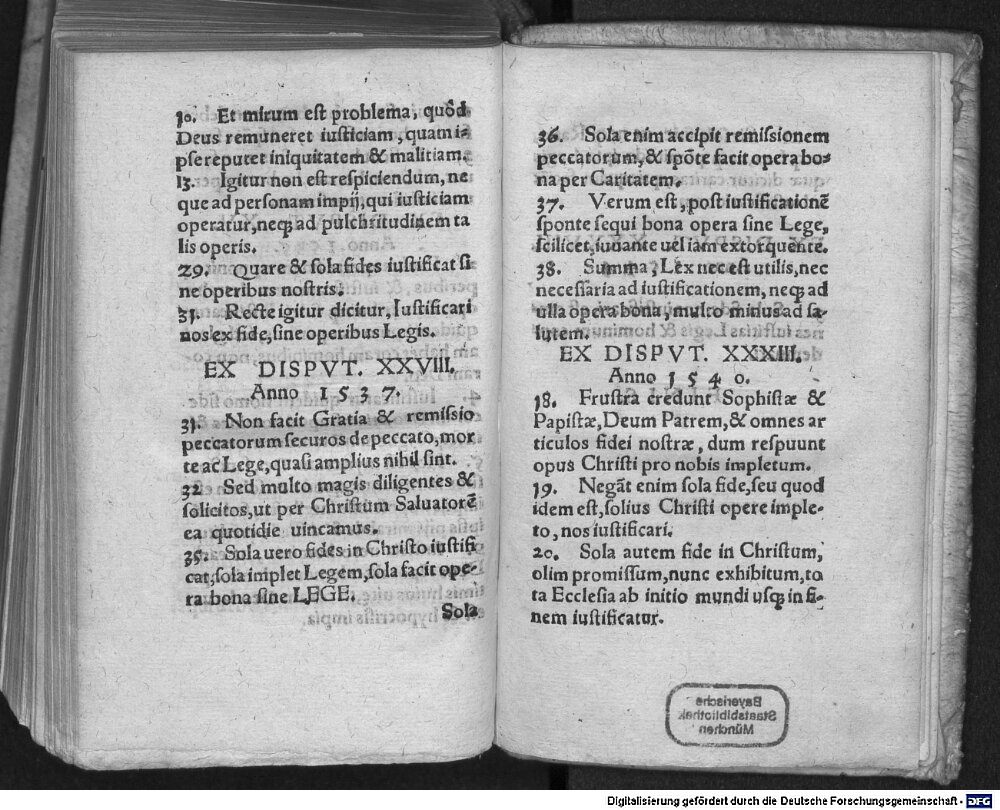 10. Et mirum est problema, quôd
Deus remuneret iusticiam, quam i-
pse reputet iniquitatem & malitiam.
13. Igitur non est respiciendum, ne
que ad personam impij, qui iusticiam
operatur, neq; ad pulchritudinem ta
lis operis.
29. Quare & sola fides iustificat si
ne operibus nostris.
31. Recte igitur dicitur, Iustificari
nos ex fide, sine operibus Legis.
EX DISPVT. XXVIII.
Anno 1537.
31. Non facit Gratia & remissio
peccatorum securos de peccato, mor
te ac Lege, quasi amplius nihil sint.
32 Sed multo magis diligentes &
solicitos, ut per Christum Saluatorē
ea quotidie uincamus.
35. Sola uero fides in Christo iustifi
cat, sola implet Legem, sola facit ope-
ra bona sine LEGE.
Sola
36. Sola enim accipit remissionem
peccatorum, & spōte facit opera bo-
na per Caritatem.
37. Verum est, post iustificationē
sponte sequi bona opera sine Lege,
scilicet, iuuante uel iam extorquente.
38. Summa, Lex nec est utilis, nec
necessaria ad iustificationem, neq; ad
ulla opera bona, multo minus ad sa-
lutem.
EX DISPVT. XXXIII.
Anno 1540.
18. Frustra credunt Sophistæ &
Papistæ, Deum Patrem, & omnes ar
ticulos fidei nostræ, dum respuunt
opus Christi pro nobis impletum.
19. Negāt enim sola fide, seu quod
idem est, solius Christi opere imple-
to, nos iustificari.
20. Sola autem fide in Christum,
olim promissum, nunc exhibitum, to
ta Ecclesia ab initio mundi usq; in fi-
nem iustificatur.
Bayerische
Staatsbibliothek
München
Digitalisierung gefördert durch die Deutsche Forschungsgemeinschaft - DFG